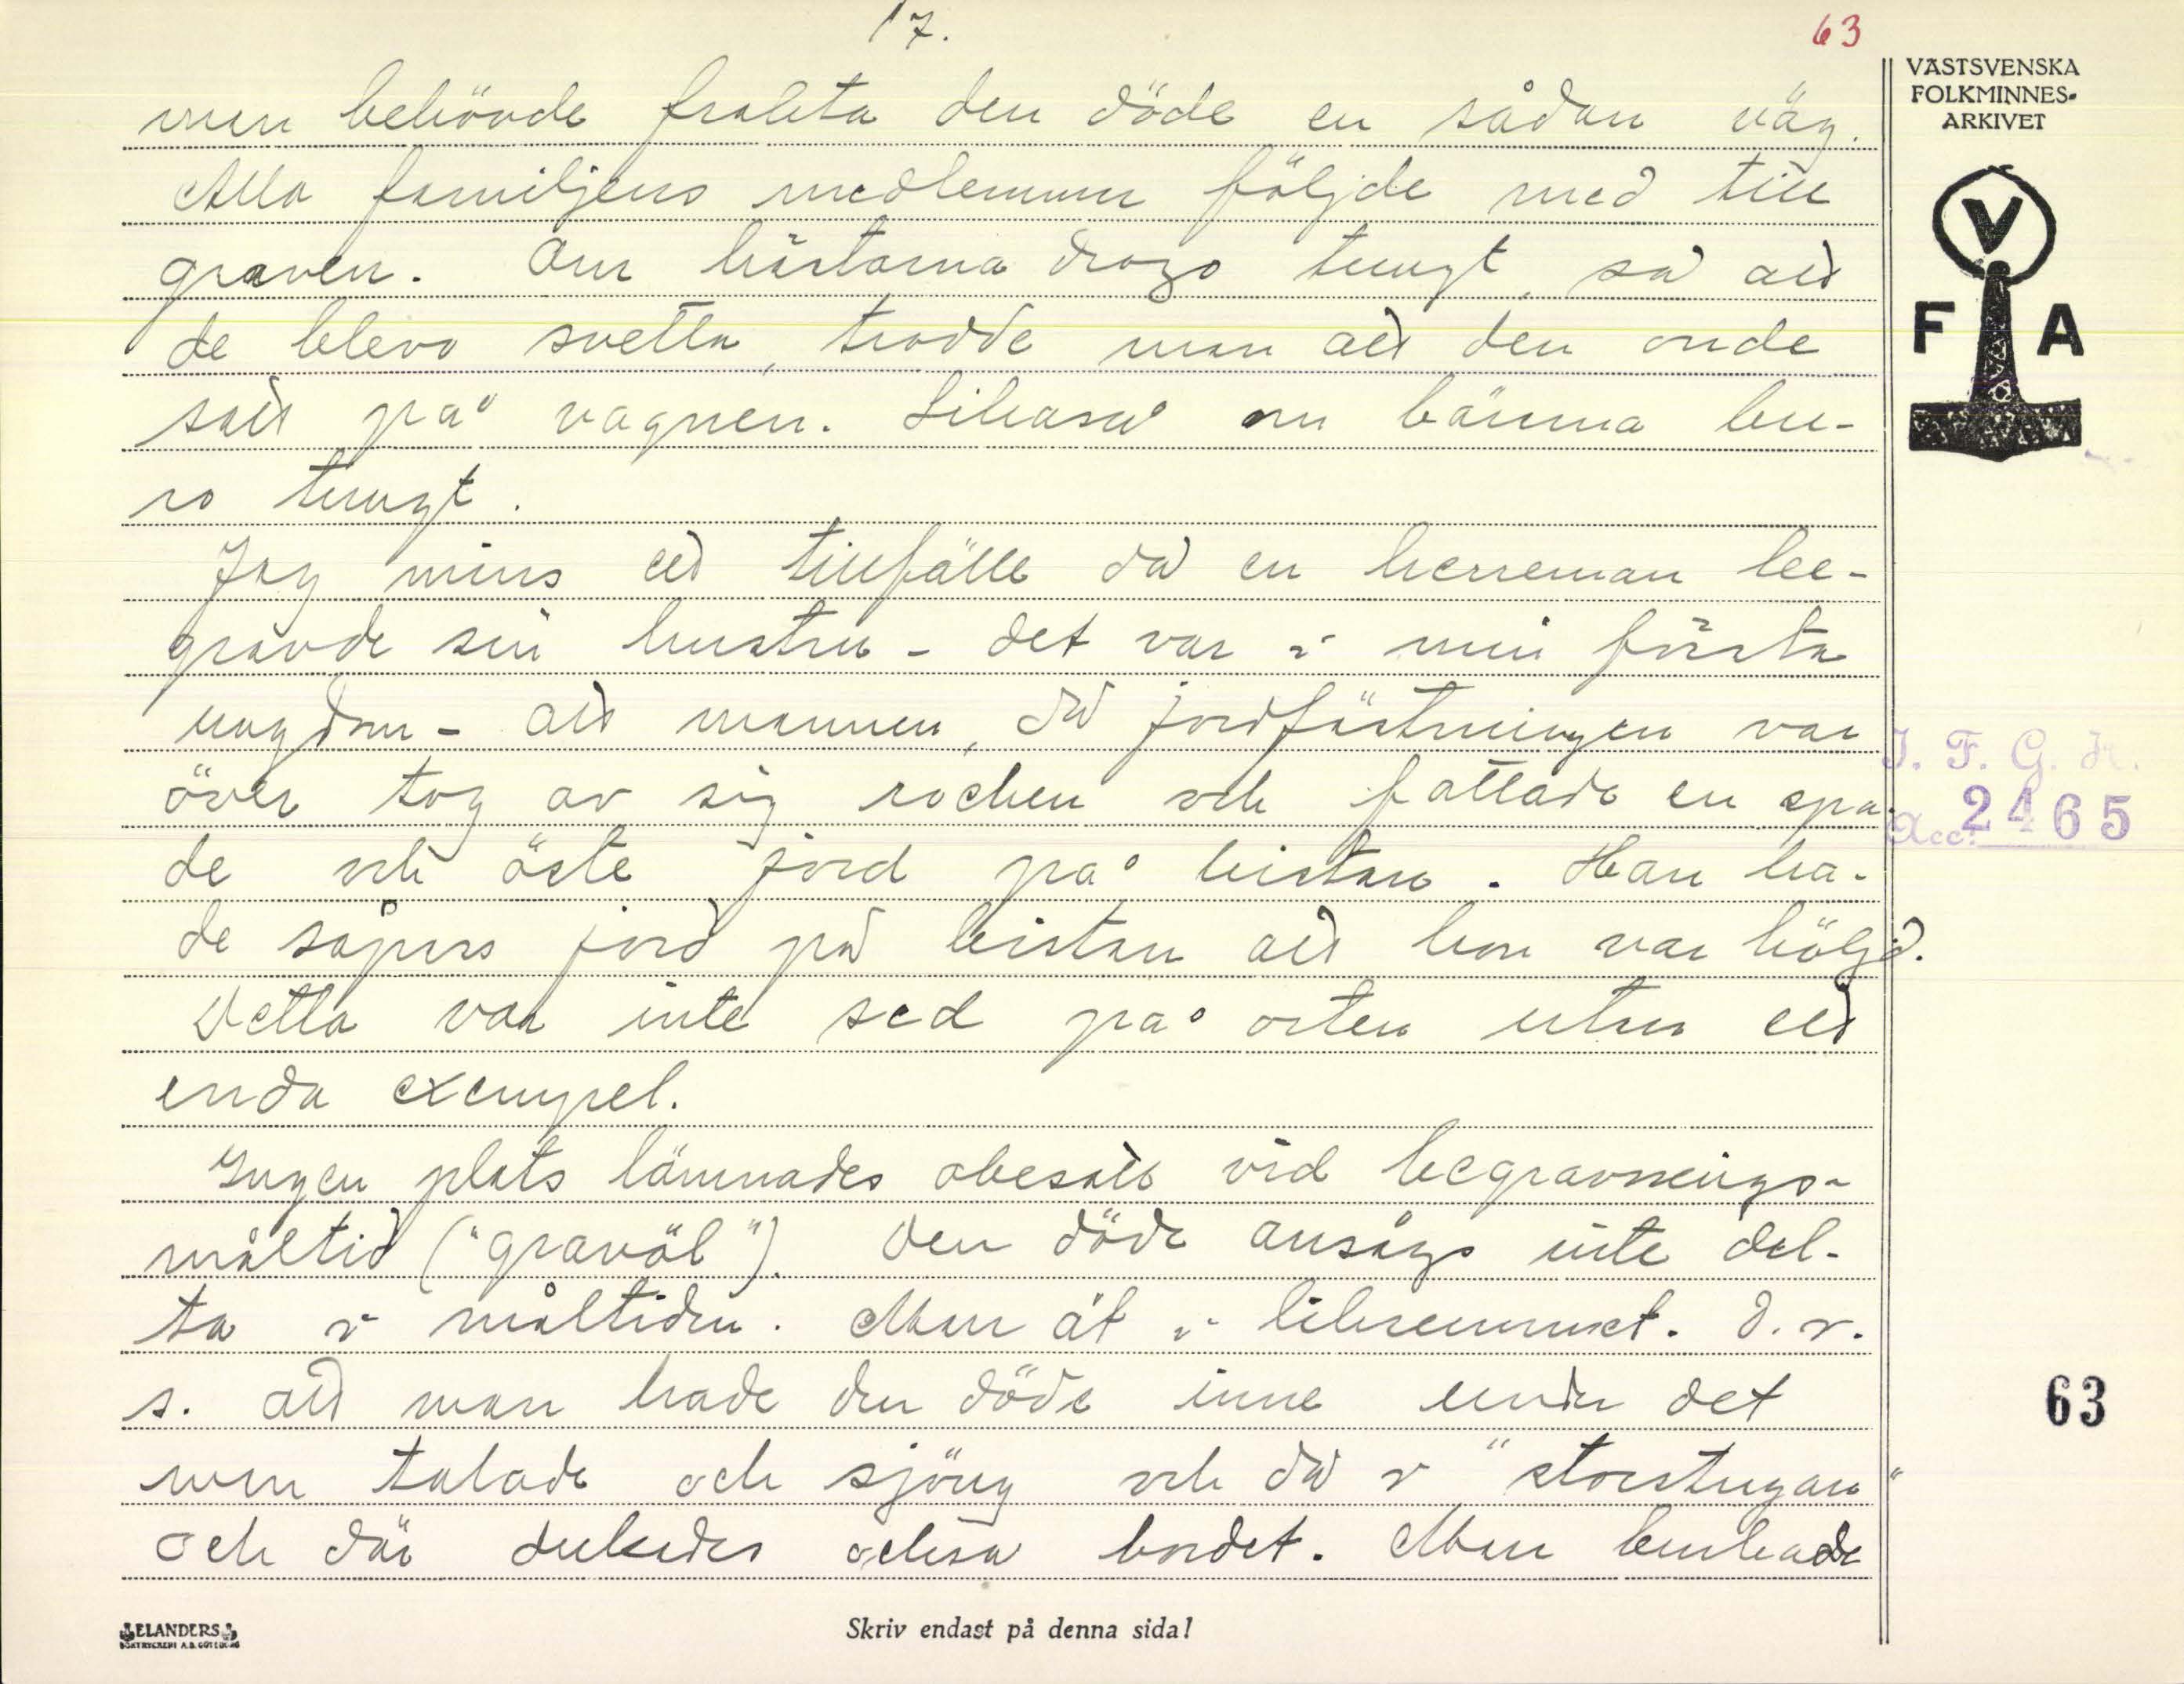 17.
63
VÄSTSVENSKA
FOLKMINNES-
ARKIVET
V
F A
men behövde frakta den döde en sådan väg.
Alla familjens medlemmar följde med till
graven. Om hästarna drogo tungt, så att
de blevo svetta, trodde man att den onde
satt på vagnen. Likaså om bärarna bu-
ro tungt.
Jag mins ett tillfälle då en herreman be-
gravde sin hustru - det var i min första
ungdom - att mannen, då jordfästningen var
över tog av sig rocken och fattade en spa-
de och öste jord på kistan. Han ha-
de såpass jord på kistan att hon var höljd.
Detta var inte sed på orten utan ett
enda exempel.
Ingen plats lämnades obesatt vid begravnings-
måltid ("gravöl"). Den döde ansågs inte del-
ta i måltiden. Man åt i likrummet. D.v.
s. att man hade den döde inne under det
man talade och sjöng och då i "storstugan"
och där dukades också bordet. Man brukade
I. F. G. H.
Acc. 2465
63
ELANDERS
BOKTRYCKERI A.B. GÖTEBORG
Skriv endast på denna sida!